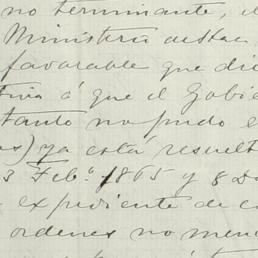 no terminante, el
Ministerio de Hac
favorable que die
tiva á que el Gobie
tanto no pudo e
os) ya está resuelt
3 Feb.º 1865 y 8 D
expediente de c
ordenes no men